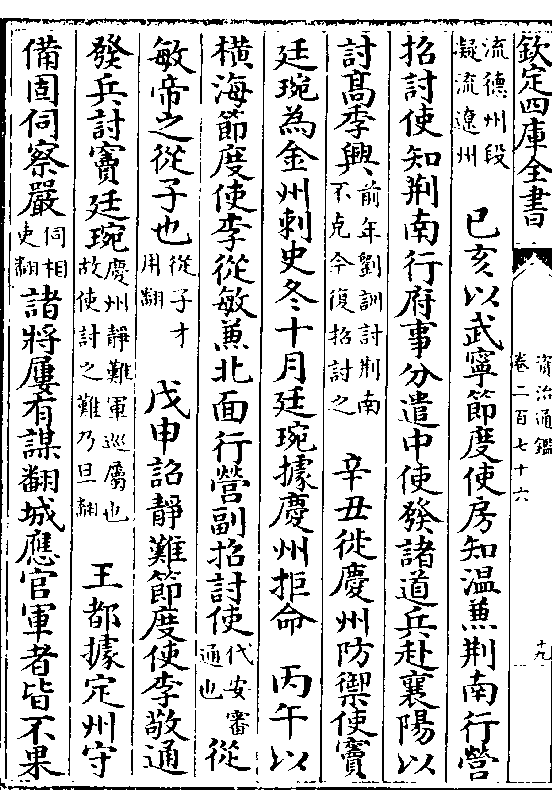 欽定四庫全書
資治通鑑
卷二百七十六
十九
流德州段
凝流遼州
己亥以武寧節度使房知温兼荆南行營
招討使知荆南行府事分遣中使發諸道兵赴襄陽以
討髙季興
前年劉訓討荆南
不克今復招討之
辛丑徙慶州防禦使竇
廷琬為金州刺史冬十月廷琬據慶州拒命
丙午以
横海節度使李從敏兼北面行營副招討使
代安審
通也
從
敏帝之從子也
從子才
用翻
戊申詔静難節度使李敬通
發兵討竇廷琬
慶州静難軍巡屬也
故使討之難乃旦翻
王都據定州守
備固伺察嚴
伺相
吏翻
諸將屢有謀翻城應官軍者皆不果